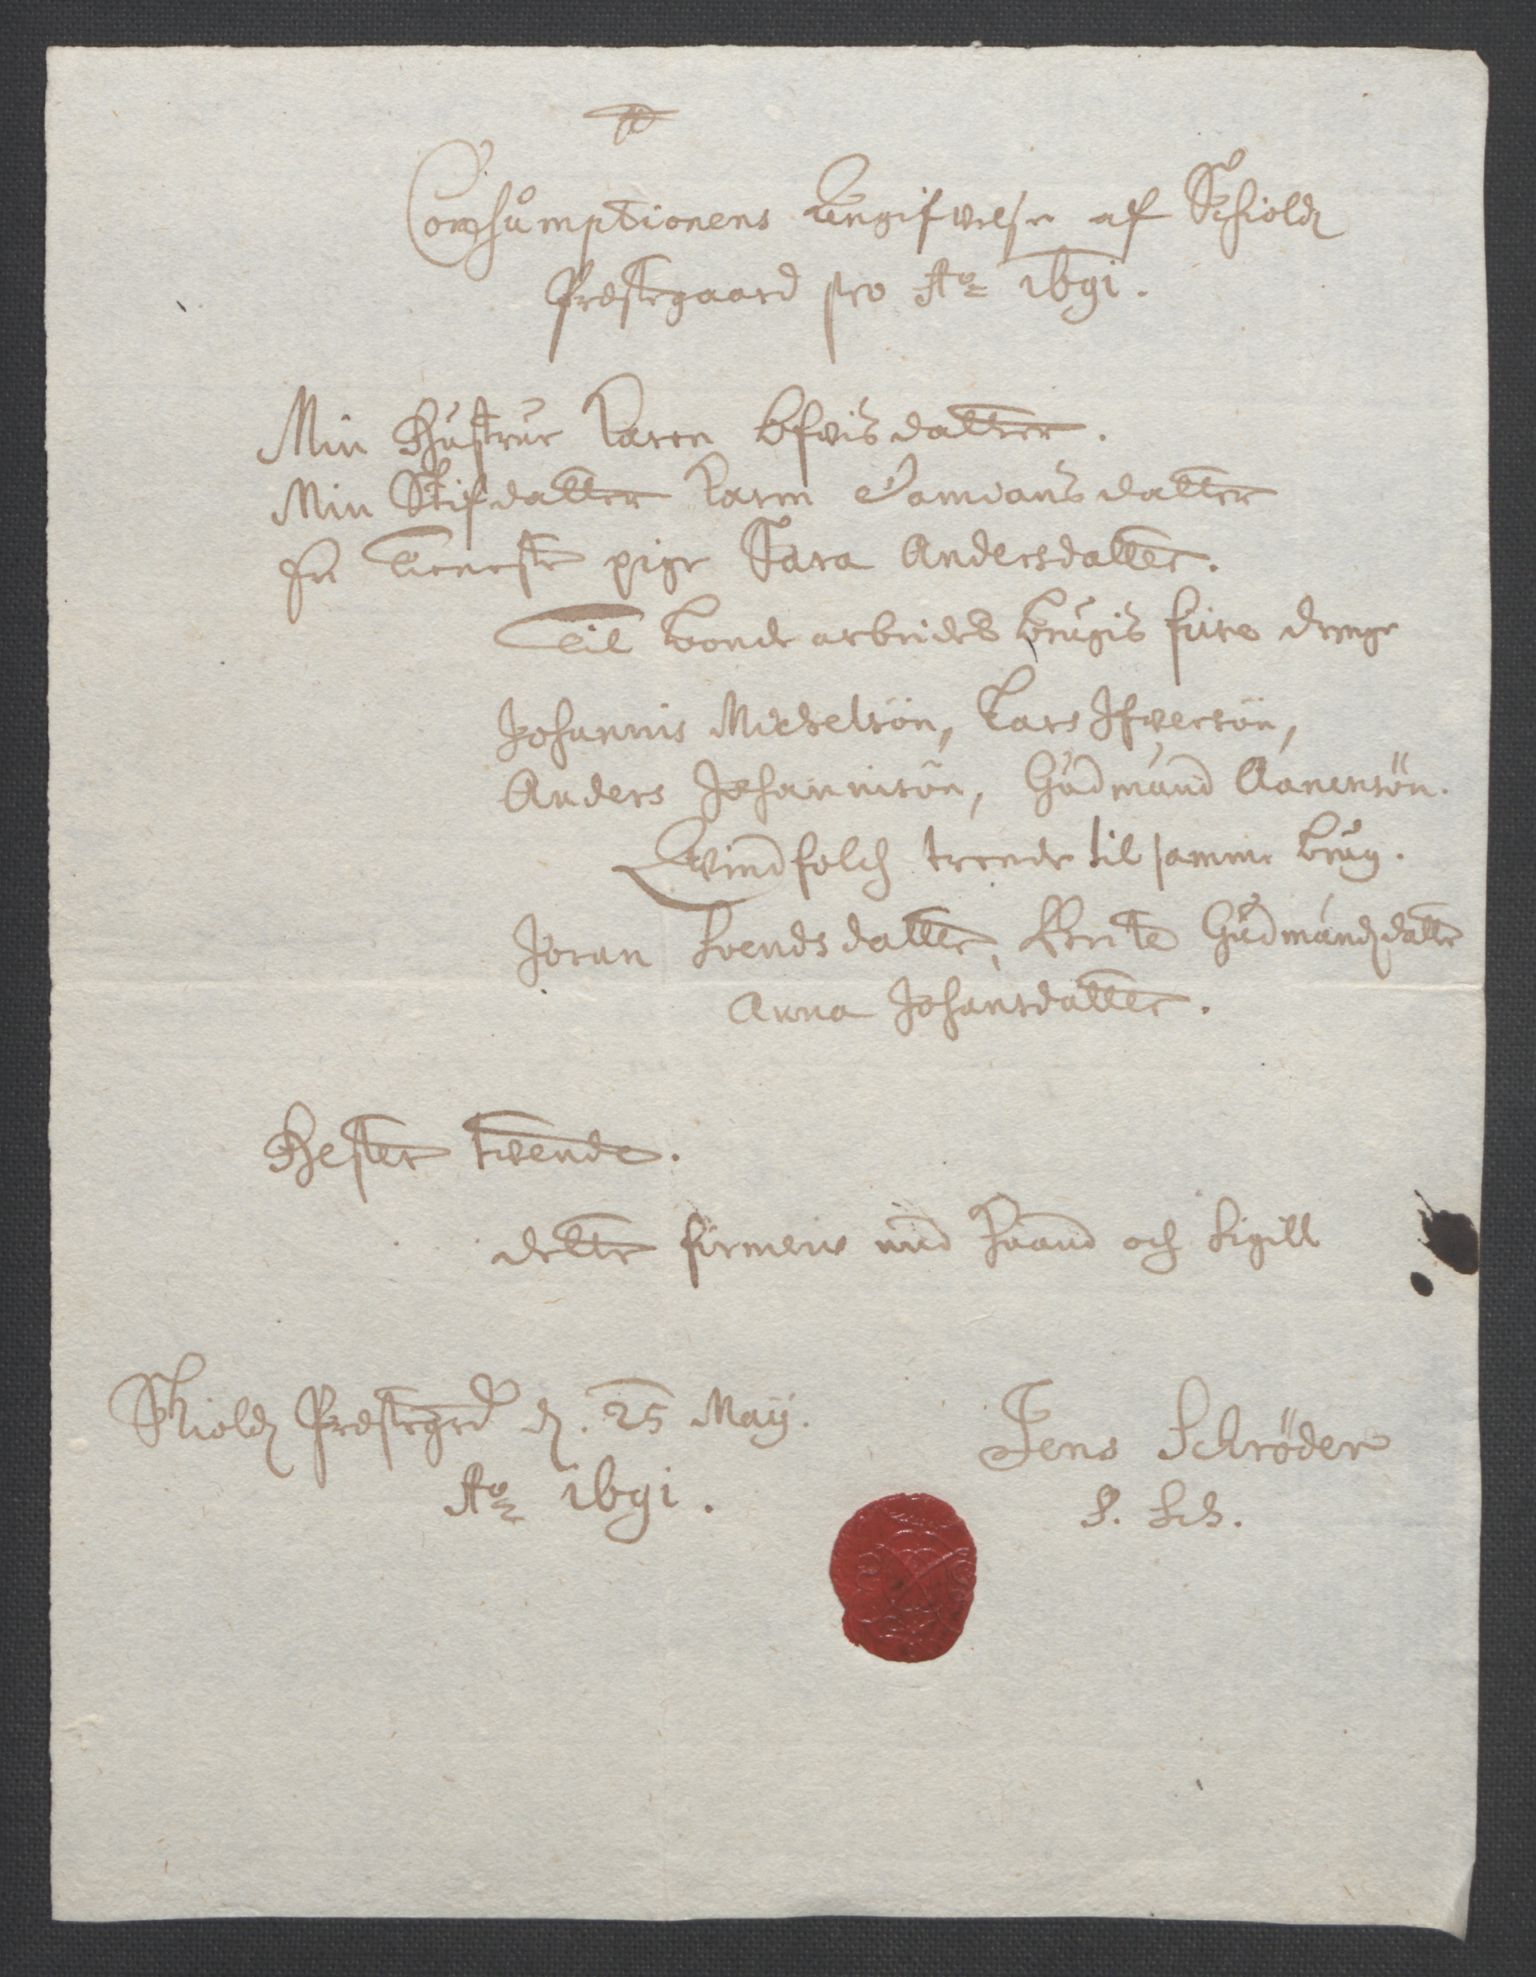 Consumptionens Angifvelse af Schiold
Præstegaard pro Ao 1691.
Min Hustrue Karen datter.
Min Stifdatter Karen datter
En Tieneste pige Sara Andersdatter.
Til bonde arbeides brugis fire drenge
Johannis Michelsön, Lars Ifversön,
Anders Johannisön, Gudmund Aanensön.
Qvindfolch trende til samme brug.
Joran Svendsdatter, Berite Gudmundsdatter
Anna Johansdatter.
Hester tvende.
dette firmerer med Haand och Sigill
Skiold Præstegrd d. 25 Maij.
Ao 1691.
Jens Schröder